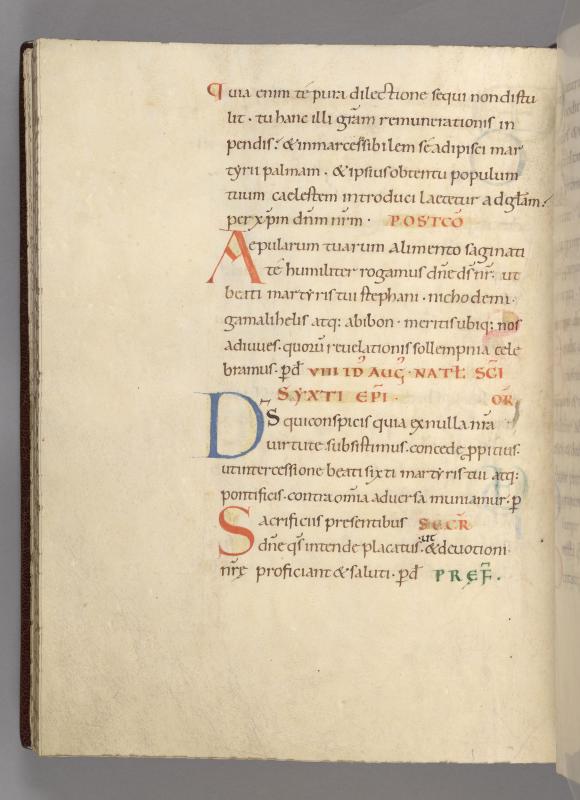 quia enim te pura dilectione sequi non distu
lit· tu hanc illi gr̃am remunerationis in
pendis; & inmarcessibilem se adipisci mar
tyrii palmam· & ipsius obtentu populum
tuum caelestem introduci laetetur ad gl̃am;
per xp̃m dñm nr̃m· POSTCÕ
Aepularum tuarum alimento saginati
te humiliter rogamus dñe d̃s nr̃· ut
beati martyris tui stephani· nichodemi·
gamalihelis atq; abibon· meritis ubiq; nos
adiuues· quorũ reuelationis sollempnia cele
bramus· p̃d VIII ID AUG̃· NATL̃ SC̃I
SYXTI EP̃I· OR̃
D̃S qui conspicis quia ex nulla nr̃a
uirtute subsistimus· concede ꝓpitius·
ut intercessione beati sixti martyris tui atq:
pontificis· contra om̃ia aduersa muniamur· p̃
Sacrificiis presentibus SECR̃
dñe q̃s intende placatus· ut & deuotioni
nr̃ę proficiant & saluti· p̃d PREF̃·